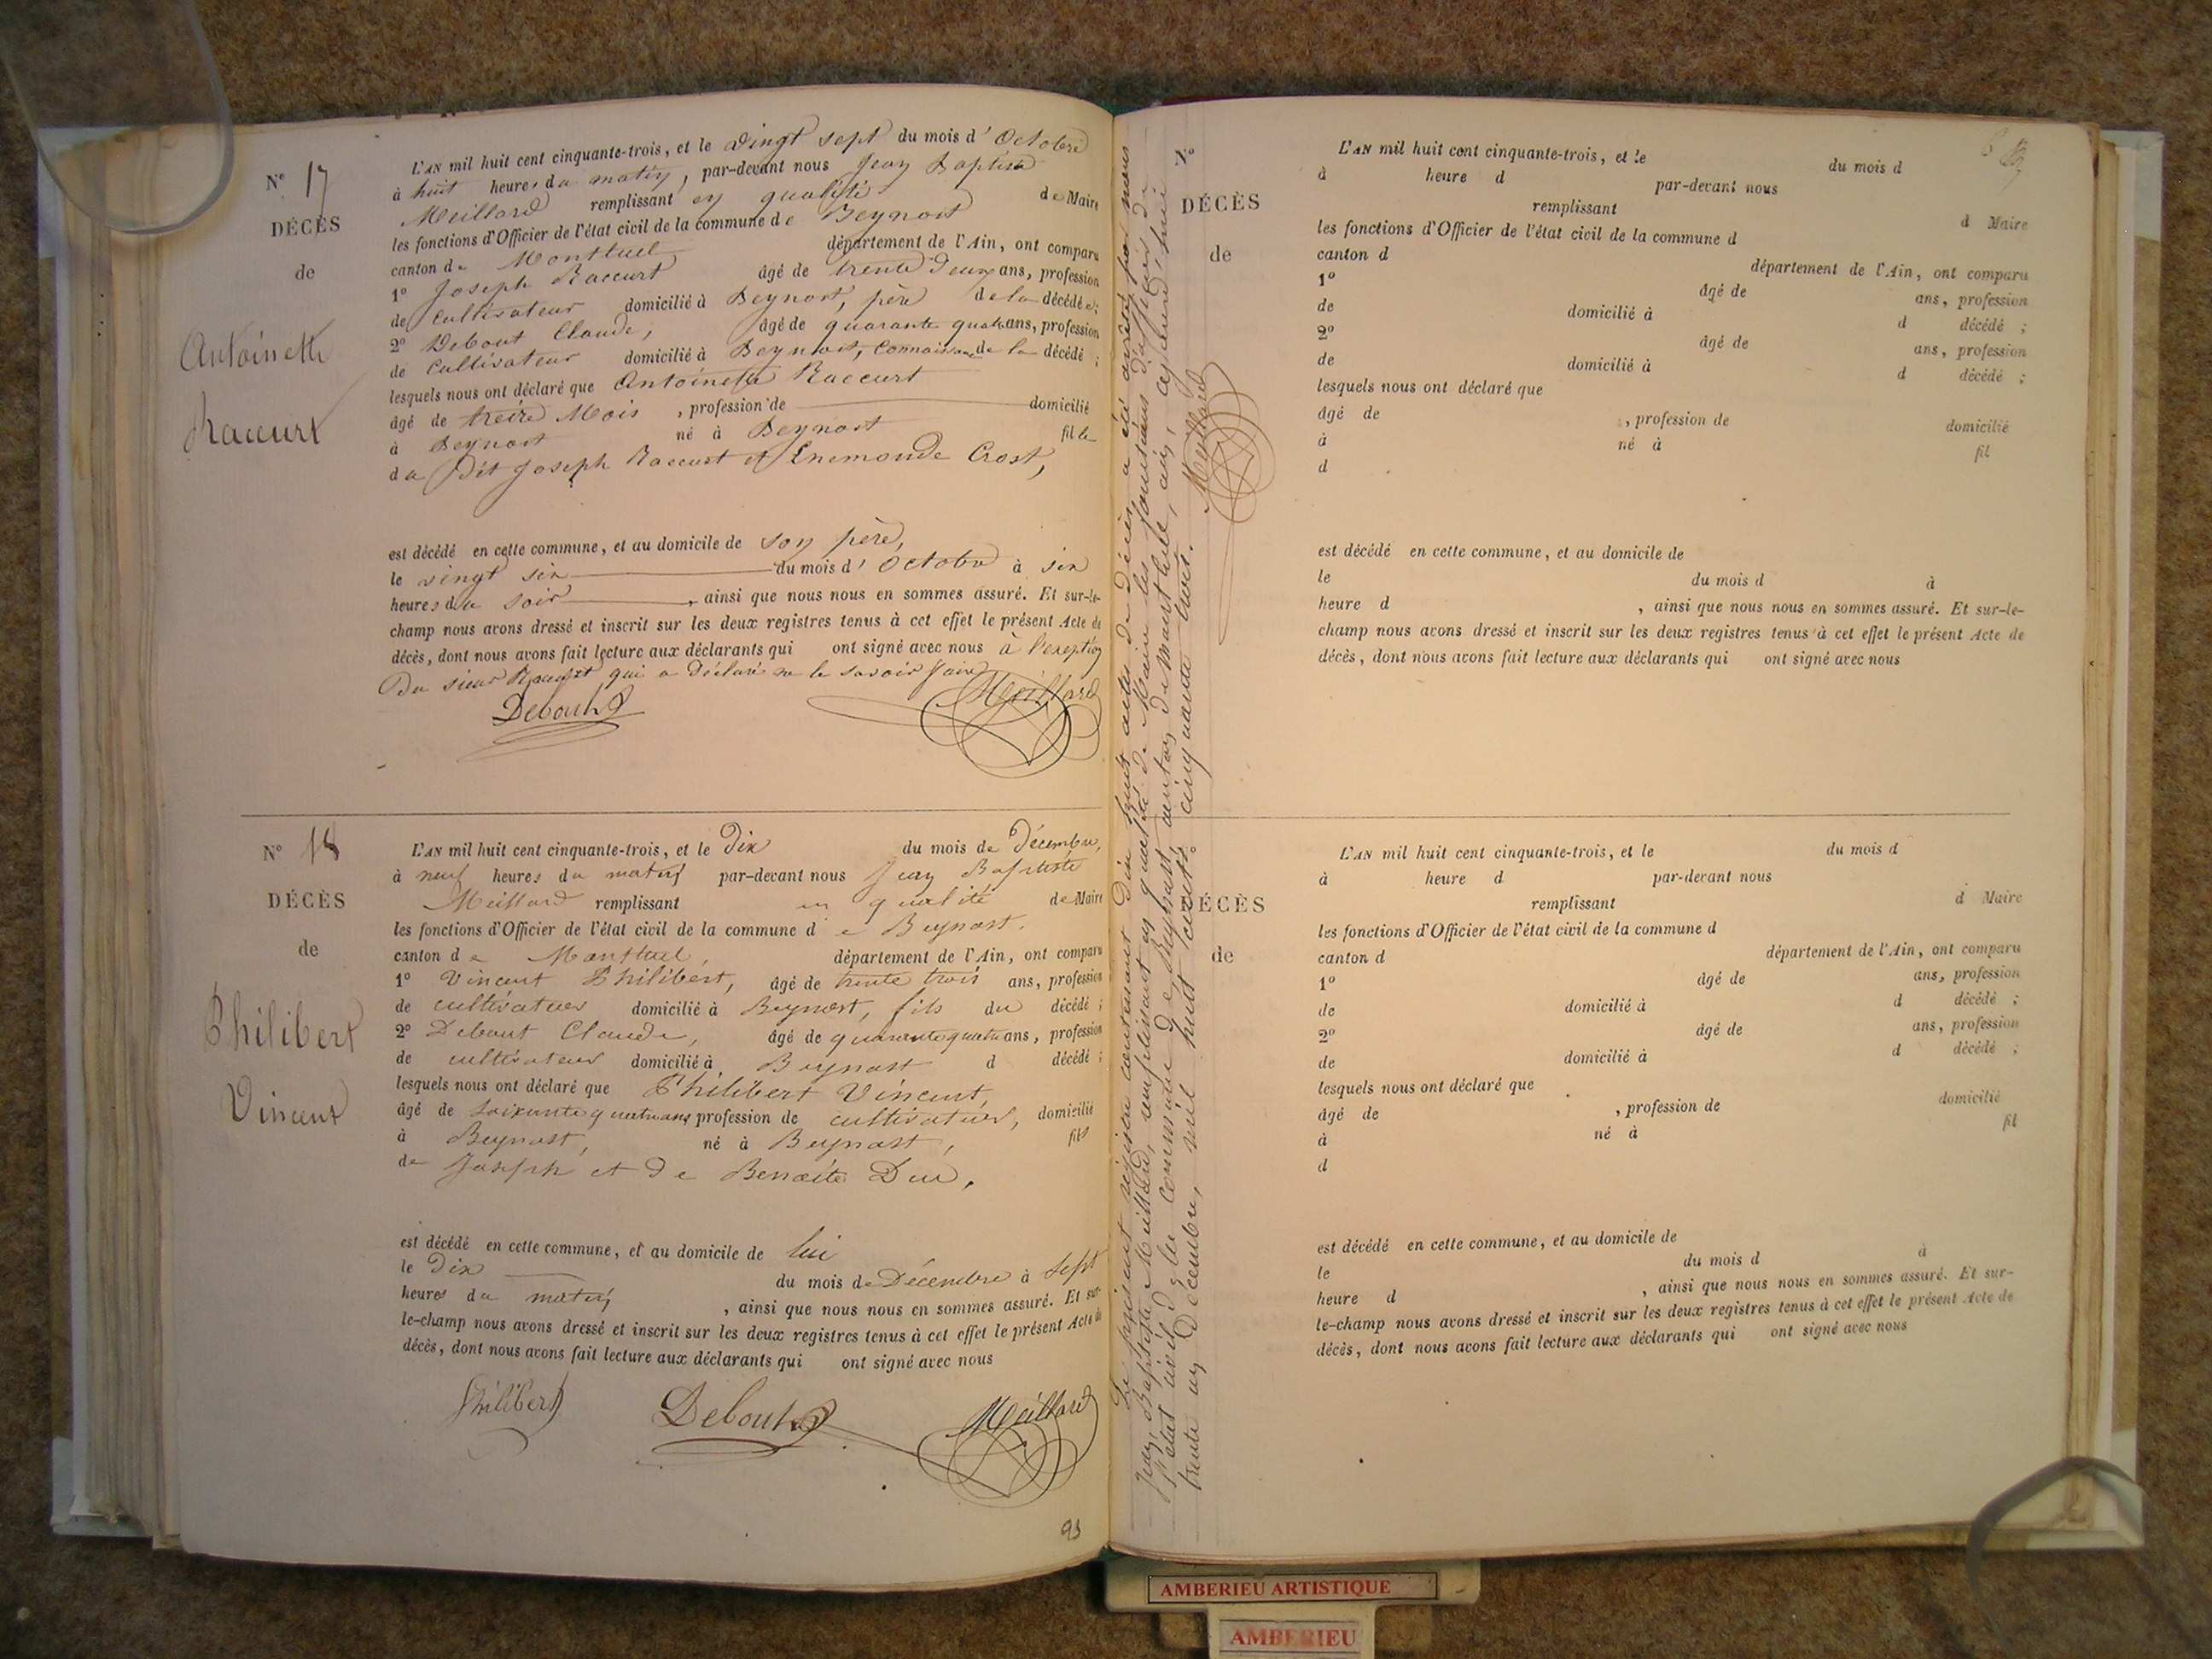 N° 17
DÉCÈS
de
Antoinette
Raccurt
L'AN mil huit cent cinquante-trois, et le vingt sept du mois d' Octobre
à huit heures du matin, par-devant nous Jean Baptiste
Meillard remplissant en qualité de Maire
les fonctions d'Officier de l'état civil de la commune de Beynost
canton de Montluel département de l'Ain, ont comparu
1° Joseph Raccurt âgé de trente deux ans, profession
de cultivateur domicilié à Beynost, père de la décédée;
2° Debout Claude, âgé de quarante quatre ans, profession
de cultivateur domicilié à Beynost, connaissance de la décédé ;
lesquels nous ont déclaré que Antoinette Raccurt
âgé de treize Mois , profession de domicilié
à Beynost né à Beynost fille
du Dit Joseph Raccurt et Enemonde Crost,
est décédé en cette commune, et au domicile de son père,
le vingt six du mois d' Octobre à six
heures du soir , ainsi que nous nous en sommes assuré. Et sur-le-
champ nous avons dressé et inscrit sur les deux registres tenus à cet effet le présent Acte de
décès, dont nous avons fait lecture aux déclarants qui ont signé avec nous à l'exeption
Du sieur Raccurt qui a déclaré ne le savoir faire
Debout Meillard
N° 18
DÉCÈS
de
Philibert
Vincent
L'AN mil huit cent cinquante-trois, et le Dix du mois de Décembre,
à neuf heures du matin par-devant nous Jean Baptiste
Meillard remplissant en qualité de Maire
les fonctions d'Officier de l'état civil de la commune de Beynost.
canton de Montluel, département de l'Ain, ont comparu
1° Vincent Philibert, âgé de trente trois ans, profession
de cultivateur domicilié à Beynost, fils du décédé ;
2° Debout Claude, âgé de quarante quatre ans, profession
de cultivateur domicilié à Beynost d décédé ;
lesquels nous ont déclaré que Philibert Vincent,
âgé de soixante quatre ans profession de cultivateur, domicilié
à Beynost, né à Beynost, fils
de Joseph et de Benoîte Duc,
est décédé en cette commune, et au domicile de lui
le Dix du mois de Décembre à sept
heures du matin , ainsi que nous nous en sommes assuré. Et sur-
le-champ nous avons dressé et inscrit sur les deux registres tenus à cet effet le présent Acte de
décès, dont nous avons fait lecture aux déclarants qui ont signé avec nous
Philibert Debout Meillard
93
Le présent registre contenant Dix huit actes de décès, a été arrêté par nous
Jean Baptiste Meillard, remplissant en qualité de Maire les fonctions d'officier de
l'état civil de la commune de Beynost, canton de Montluel, ain, aujourd'hui
trente un Décembre, mil huit cent cinquante trois.
Meillard
N°
DÉCÈS
de
L'AN mil huit cent cinquante-trois, et le du mois d
à heure d par-devant nous
remplissant d Maire
les fonctions d'Officier de l'état civil de la commune d
canton d département de l'Ain, ont comparu
1° âgé de ans, profession
de domicilié à d décédé ;
2° âgé de ans, profession
de domicilié à d décédé ;
lesquels nous ont déclaré que
âgé de , profession de domicilié
à né à fil
d
est décédé en cette commune, et au domicile de
le du mois d à
heure d , ainsi que nous nous en sommes assuré. Et sur-le-
champ nous avons dressé et inscrit sur les deux registres tenus à cet effet le présent Acte de
décès, dont nous avons fait lecture aux déclarants qui ont signé avec nous
DÉCÈS
de
L'AN mil huit cent cinquante-trois, et le du mois d
à heure d par-devant nous
remplissant d Maire
les fonctions d'Officier de l'état civil de la commune d
canton d département de l'Ain, ont comparu
1° âgé de ans, profession
de domicilié à d décédé ;
2° âgé de ans, profession
de domicilié à d décédé ;
lesquels nous ont déclaré que
âgé de , profession de domicilié
à né à fil
d
est décédé en cette commune, et au domicile de
le du mois d à
heure d , ainsi que nous nous en sommes assuré. Et sur-
le-champ nous avons dressé et inscrit sur les deux registres tenus à cet effet le présent Acte de
décès, dont nous avons fait lecture aux déclarants qui ont signé avec nous
AMBERIEU ARTISTIQUE
AMBERIEU